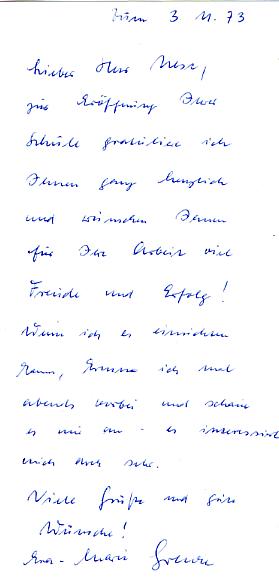 3 11. 73
Lieber Herr
zur Eröffnung Ihrer
Schule gratuliere ich
Ihnen ganz herzlich
und wünsche Ihnen
für Ihre Arbeit viel
Freude und Erfolg!
Wenn ich es einrichten
kann, komme ich mal
abends vorbei und schaue
es mir an - es interessiert
mich doch sehr.
Viele Grüße und gute
Wünsche!
-Marie